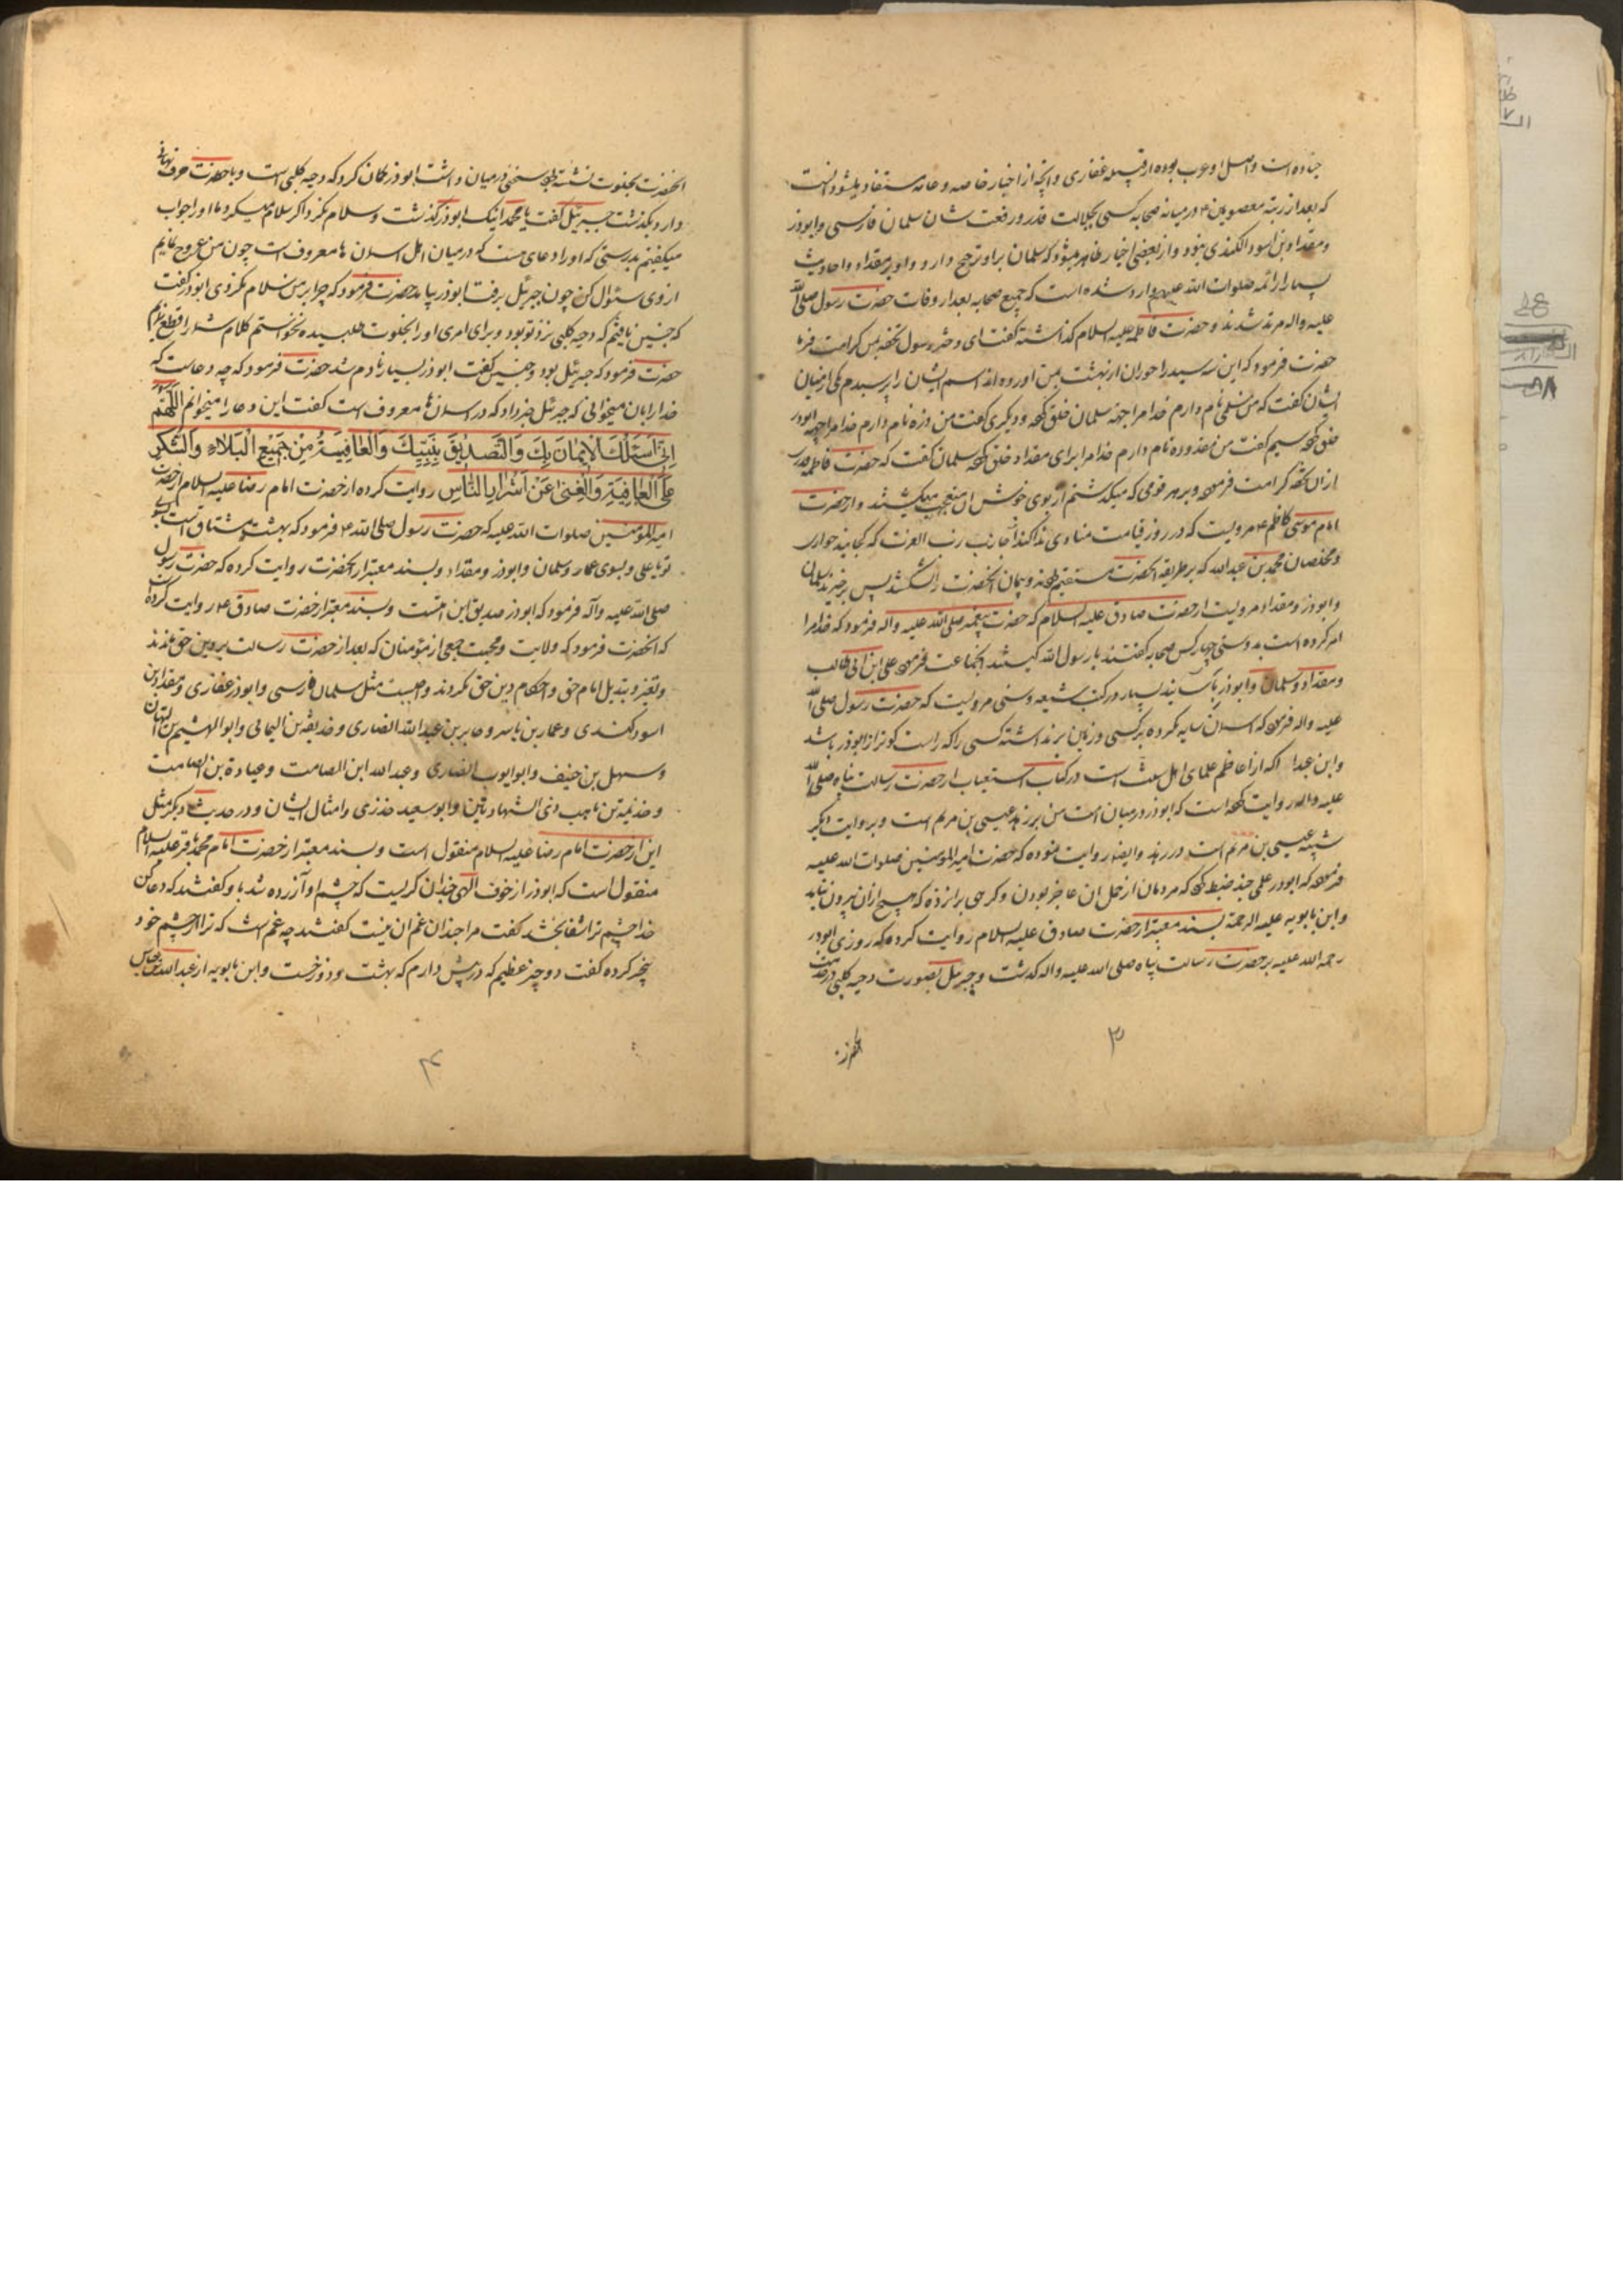 جناده است و اصل او عرب بوده از قبیله غفاری و آنچه از اخبار خاصه و عامه مستفاد میشود انست
که بعد از رتبه معصومین ع در میانه صحابه کسی بجلالت قدر و رفعت شان سلمان فارسی و ابوذر
و مقداد بن اسود الکندی نبود و از بعضی اخبار ظاهر میشود که سلمان براو ترجیح دارد و او بر مقداد و احادیث
بسیار از ائمه صلوات الله علیهم وارد شده است که جمیع صحابه بعد از وفات حضرت رسول صلی الله
علیه واله مرتد شدند و حضرت فاطمه علیه السلام گفت ای رسول تحفه بمن کرامت فرما
حضرت فرمود که این سه سید را حوران از بهشت بمن اورده اند اسم ایشان را پرسیدم یکی از میان
ایشان گفت که من سلمی نام دارم خدا مرا جهة سلمان خلق کرده و دیگری گفت من ذره نام دارم خدا مرا جهة ابوذر
خلق کرده سیم گفت من مقدوده نام دارم خدا مرا برای مقداد خلق کرده سلمان گفت که حضرت فاطمه قدری
ازان تحفه کرامت فرموده و بر هر قومی که میگذشتم از بوی خوش ان متعجب میگشتند و از حضرت
امام موسی کاظم ع مرویست که در روز قیامت منادی ندا کند از جانب رب العزت که کجایند حواری
و مخلصان محمد بن عبدالله که بر طریقه انحضرت مستقیم بودند و پیمان انحضرت را نشکستند پس برخیزند سلمان
و ابوذر و مقداد مرویست از حضرت صادق علیه السلام که حضرت پیغمبر صلی الله علیه واله فرمود که خدا مرا
امر کرده است بدوستی چهار کس صحابه گفتند یا رسول الله کیستند انجماعت فرموده علی ابن ابی طالب
و مقداد و سلمان و ابوذر باسانید بسیار در کتب شیعه و سنی مرویست که حضرت رسول صلی الله
علیه واله فرموده که اسمان سایه نکرده بر کسی و زمین برنداشته کسی را که راست گوتر از ابوذر باشد
وابن عبدا که از اعاظم علمای اهل سنت است در کتاب استیعاب از حضرت رسالت پناه صلی الله
علیه واله روایت کرده است که ابوذر در میان امت من بر زهد عیسی بن مریم است و بروایت دیگر
شبیه عیسی بن مریم است در زهد و ایضا روایت نموده که حضرت امیرالمومنین صلوات الله علیه
فرموده که ابوذر علمی چند ضبط کرده که مردمان از حمل ان عاجز بودن و گرهی بران زده که هیچ ازان بیرون نیاید
وابن بابویه علیه الرحمة بسند معتبر از حضرت صادق علیه السلام روایت کرده که روزی ابوذر
رحمه الله علیه بر حضرت رسالت پناه صلی الله علیه واله گذشت و جبرئیل بصورت دحیه کلبی در خدمت
۳
انحضرت بخلوت نشسته بود و سخنی در میان داشت ابوذر گمان کرد که دحیه کلبی است و با حضرت حرف نهانی
دارد بگذشت جبرئیل گفت یا محمد اینک ابوذر گذشت و سلام نکرد اگر سلام میکرد ما او را جواب
میگفتیم بدرستی که او را دعای هست که در میان اهل اسمان ها معروف است چون من عروج نمایم
از وی سئوال کن چون جبرئیل برفت ابوذر بیامد حضرت فرمود که چرا بر من سلام نکردی ابوذر گفت
که چنین یافتم که دحیه کلبی نزد تو بود و برای امری او را بخلوت طلبیده نخواستم کلام شما را قطع نمایم
حضرت فرمود که جبرئیل بود و چنین گفت ابوذر بسیار نادم شد حضرت فرمود که چه دعاست که
خدا را بان میخوانی که جبرئیل خبر داد که در اسمان ها معروف است گفت این دعا را میخوانم اللهم
اِنّی اَسْئَلُکَ الْاِیمَانَ بِکَ وَالتَّصْدِیقَ بِنَبِیِّکَ وَالْعَافِیَةَ مِنْ جَمِیْعِ الْبَلَاءِ وَالشُّکْرَ
عَلَی الْعَافِیَةِ وَالْغِنٰی عَنْ اَشْرَارِ النَّاسِ روایت کرده از حضرت امام رضا علیه السلام از حضرت
امیر المومنین صلوات الله علیه که حضرت رسول صلی الله ع فرمود که بهشت مشتاق است بسوی
تو یا علی و بسوی عمار و سلمان و ابوذر و مقداد و بسند معتبر از انحضرت روایت کرده که حضرت رسول
صلی الله علیه وآله فرمود که ابوذر صدیق این امتست و بسند معتبر از حضرت صادق ع روایت کرده
که انحضرت فرمود که ولایت و محبت جمعی از مؤمنان که بعد از حضرت رسالت بر دین حق ماندند
و تغیر و تبدیل امام حق و احکام دین حق نکردند واجبست مثل سلمان فارسی و ابوذر غفاری و مقداد بن
اسود کندی و عمار بن یاسر و جابر بن عبدالله انصاری و حذیفه بن الیمانی و ابو الهیثم بن التیهان
و سهل بن حنیف و ابو ایوب انصاری و عبدالله ابن الصامت و عبادة بن الصامت
و خذیمه بن ثابت ذی الشهادتین و ابو سعید خذری و امثال ایشان و در حدیث دیگر مثل
این از حضرت امام رضا علیه السلام منقول است و بسند معتبر از حضرت امام محمد باقر علیه السلام
منقول است که ابوذر از خوف الهی چندان گریست که چشم او آزرده شد باو گفتند که دعا کن
خدا چشم ترا شفا بخشد گفت مرا چندان غم ان نیست گفتند چه غم است که ترا از چشم خود
بیخبر کرده گفت دو چیز عظیم که در پیش دارم که بهشت و دوزخست و ابن بابویه از عبدالله بن عباس
۴